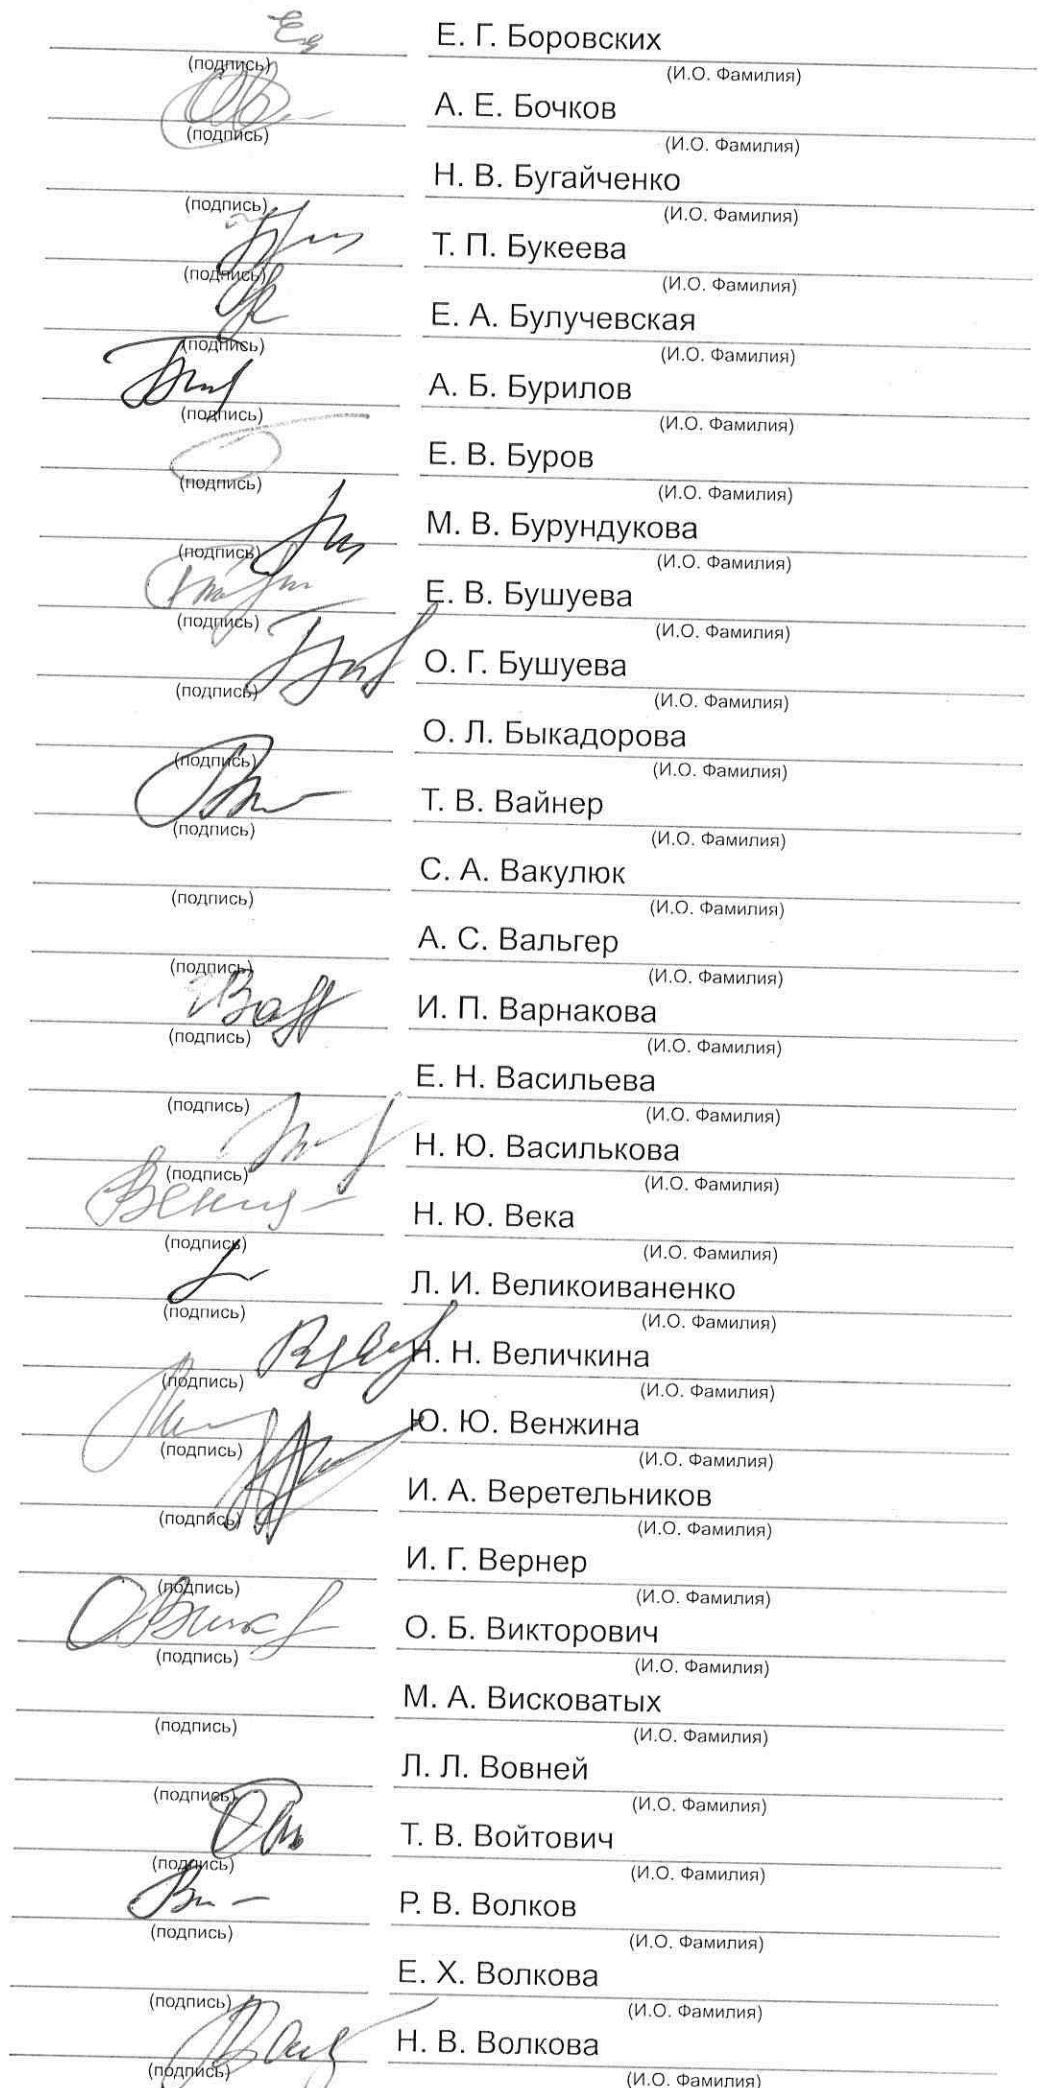 Е. Г. Боровских
(подпись) (И.О. Фамилия)
А. Е. Бочков
(подпись) (И.О. Фамилия)
Н. В. Бугайченко
(подпись) (И.О. Фамилия)
Т. П. Букеева
(подпись) (И.О. Фамилия)
Е. А. Булучевская
(подпись) (И.О. Фамилия)
А. Б. Бурилов
(подпись) (И.О. Фамилия)
Е. В. Буров
(подпись) (И.О. Фамилия)
М. В. Бурундукова
(подпись) (И.О. Фамилия)
Е. В. Бушуева
(подпись) (И.О. Фамилия)
О. Г. Бушуева
(подпись) (И.О. Фамилия)
О. Л. Быкадорова
(подпись) (И.О. Фамилия)
Т. В. Вайнер
(подпись) (И.О. Фамилия)
С. А. Вакулюк
(подпись) (И.О. Фамилия)
А. С. Вальгер
(подпись) (И.О. Фамилия)
И. П. Варнакова
(подпись) (И.О. Фамилия)
Е. Н. Васильева
(подпись) (И.О. Фамилия)
Н. Ю. Василькова
(подпись) (И.О. Фамилия)
Н. Ю. Века
(подпись) (И.О. Фамилия)
Л. И. Великоиваненко
(подпись) (И.О. Фамилия)
Н. Н. Величкина
(подпись) (И.О. Фамилия)
Ю. Ю. Венжина
(подпись) (И.О. Фамилия)
И. А. Веретельников
(подпись) (И.О. Фамилия)
И. Г. Вернер
(подпись) (И.О. Фамилия)
О. Б. Викторович
(подпись) (И.О. Фамилия)
М. А. Висковатых
(подпись) (И.О. Фамилия)
Л. Л. Вовней
(подпись) (И.О. Фамилия)
Т. В. Войтович
(подпись) (И.О. Фамилия)
Р. В. Волков
(подпись) (И.О. Фамилия)
Е. Х. Волкова
(подпись) (И.О. Фамилия)
Н. В. Волкова
(подпись) (И.О. Фамилия)